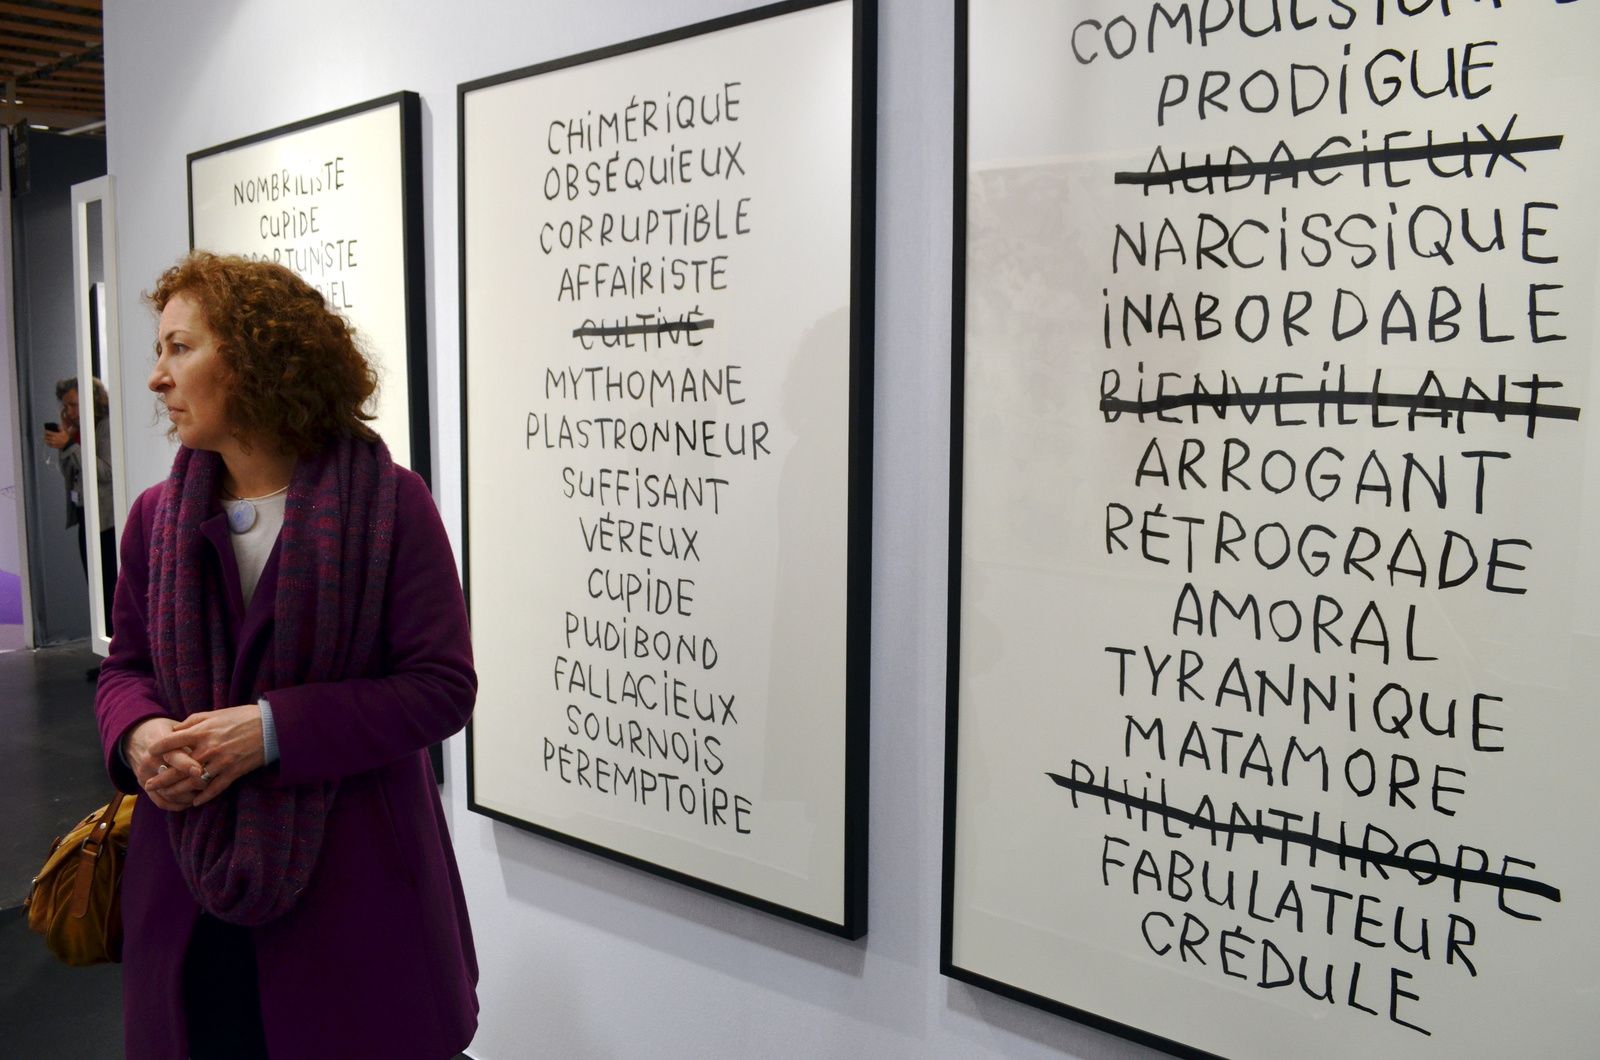 NOMBRILISTE
CUPIDE
CHIMÉRIQUE
OBSÉQUIEUX
CORRUPTIBLE
AFFAIRISTE
CULTIVÉ
MYTHOMANE
PLASTRONNEUR
SUFFISANT
VÉREUX
CUPIDE
PUDIBOND
FALLACIEUX
SOURNOIS
PÉREMPTOIRE
PRODIGUE
AUDACIEUX
NARCISSIQUE
INABORDABLE
BIENVEILLANT
ARROGANT
RÉTROGRADE
AMORAL
TYRANNIQUE
MATAMORE
PHILANTHROPE
FABULATEUR
CRÉDULE